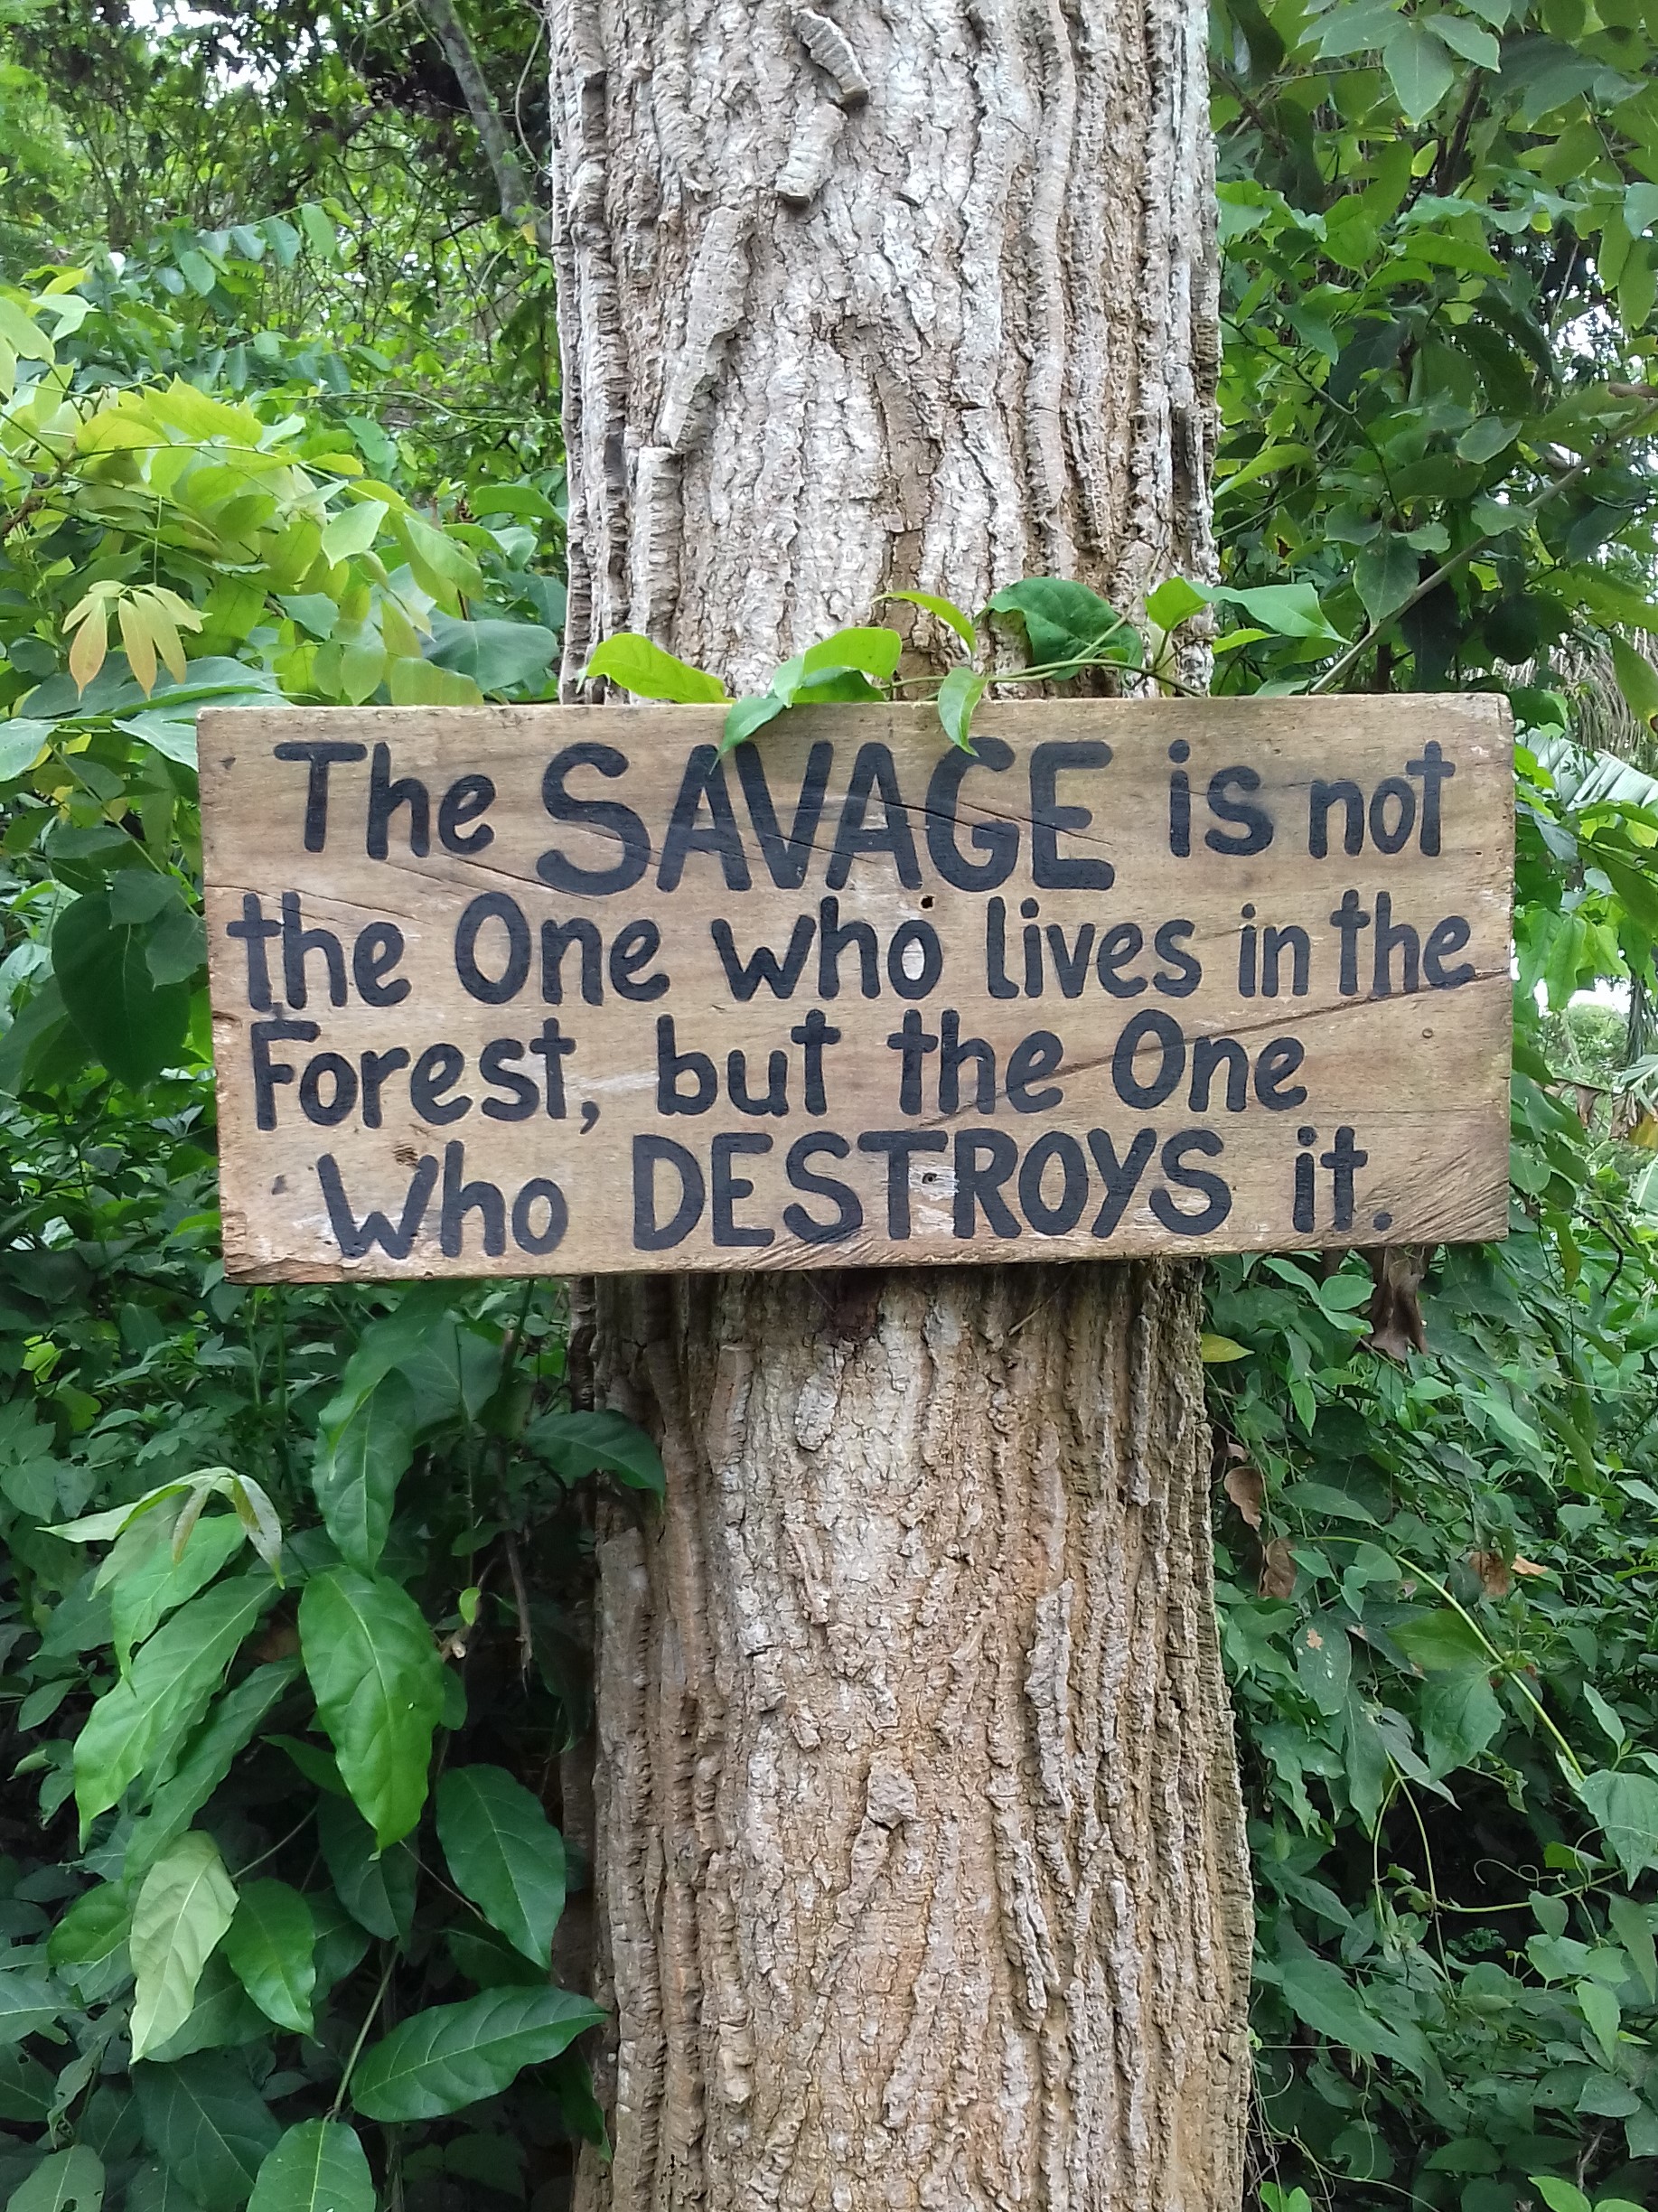 The SAVAGE is not
the One who lives in the
Forest, but the One
Who DESTROYS it.